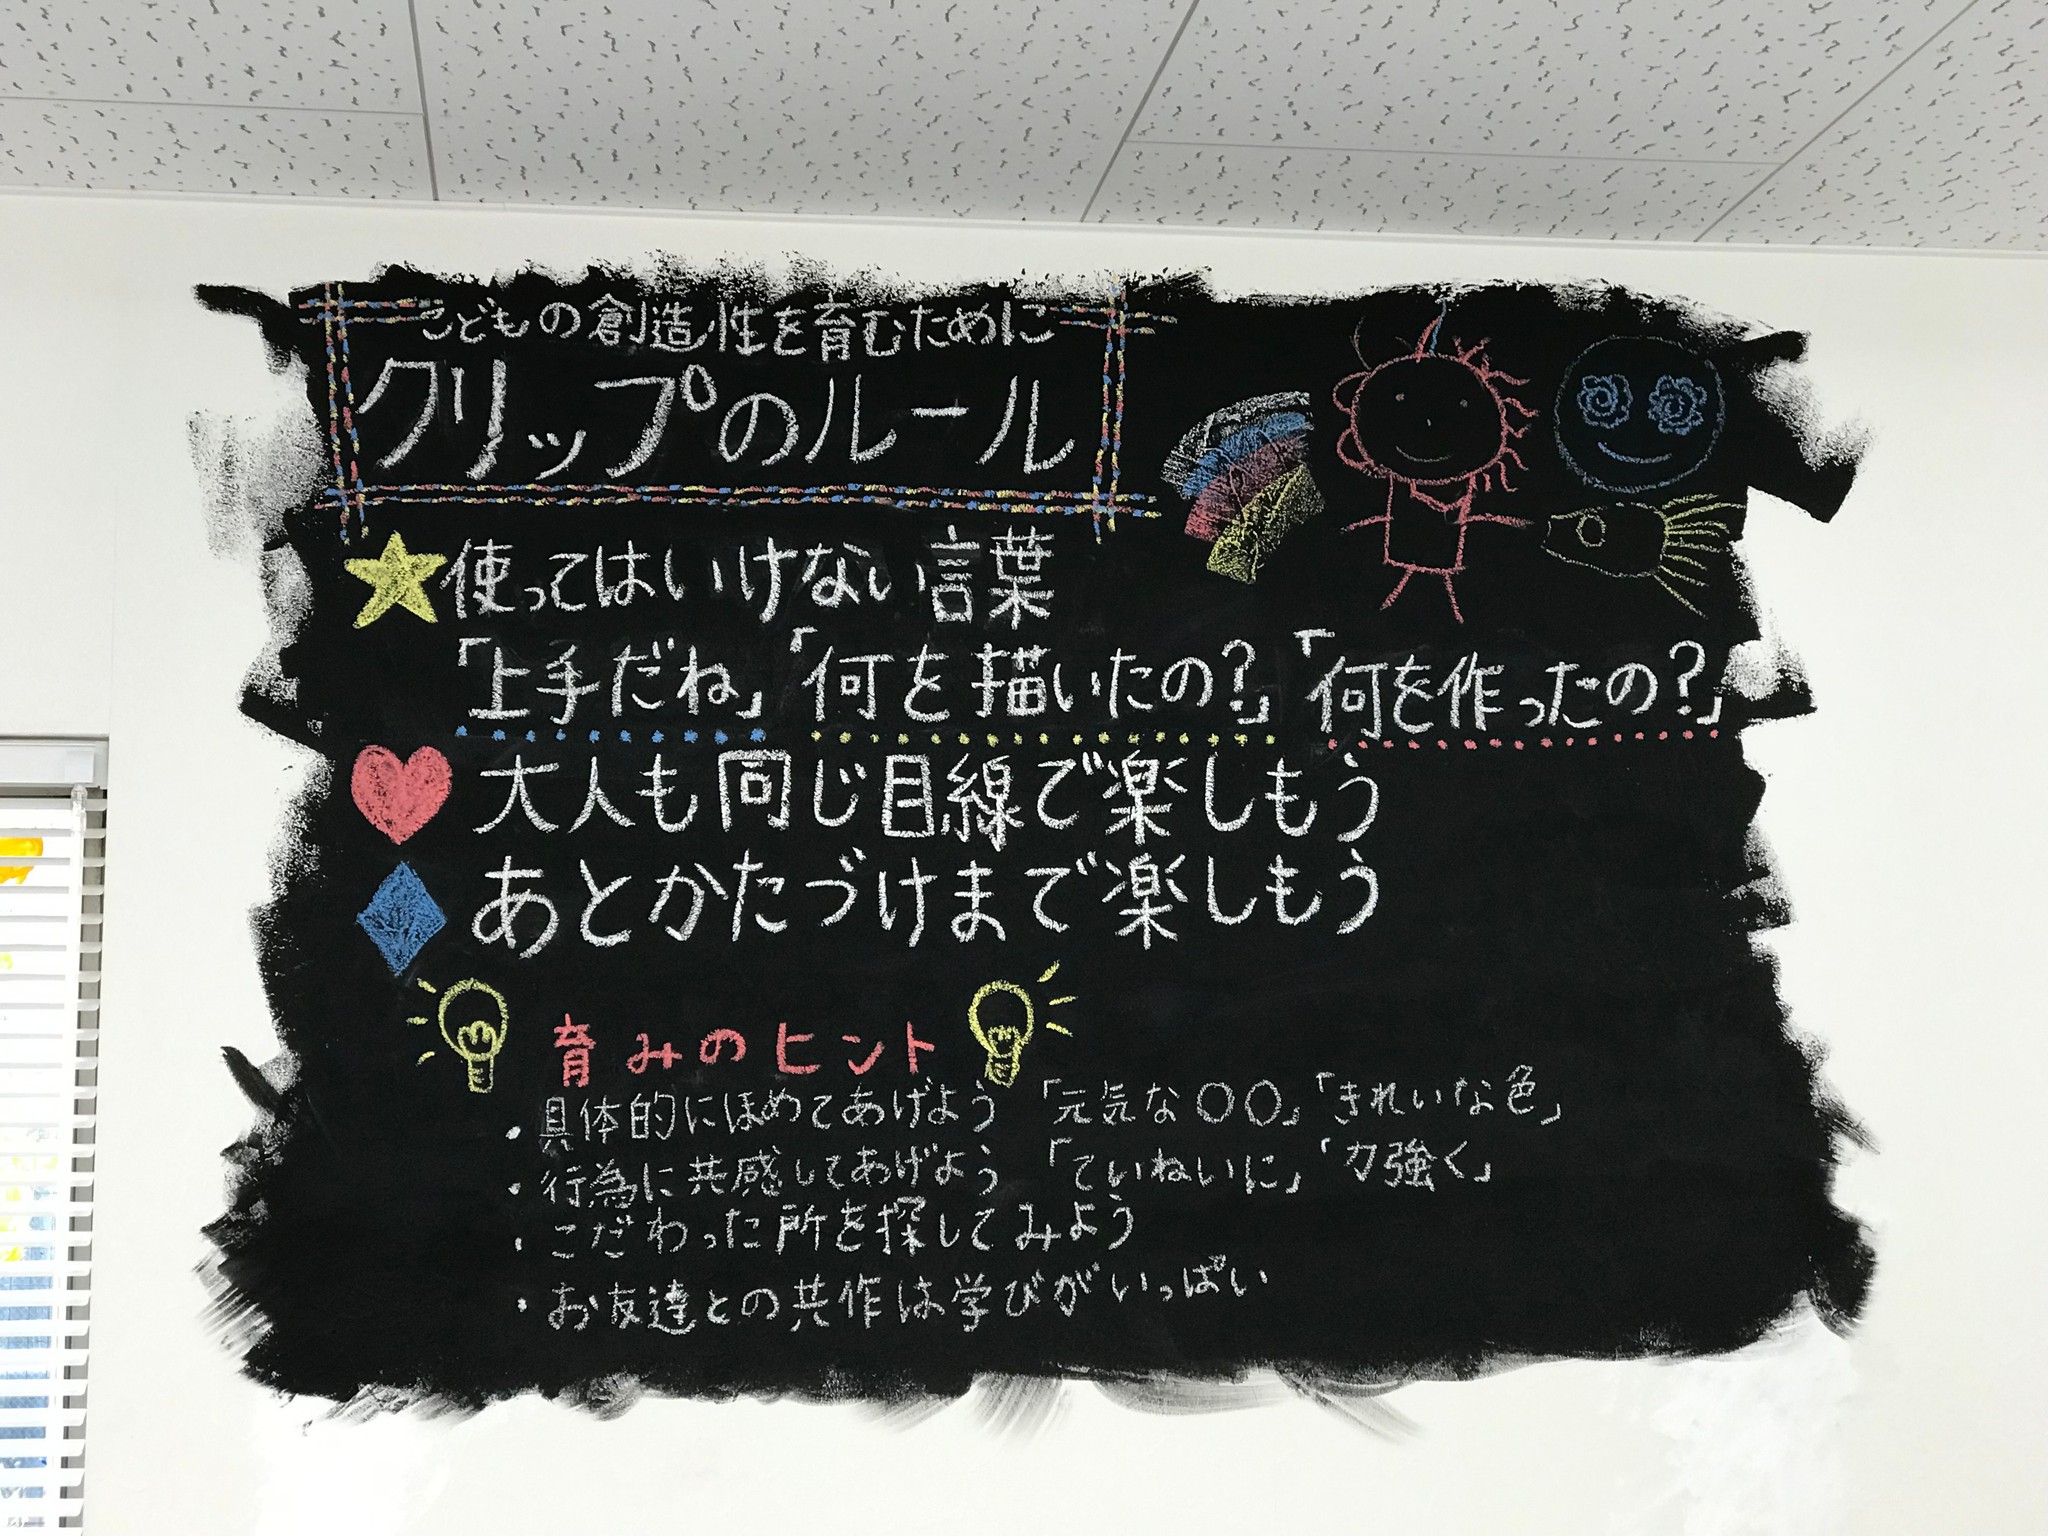 こどもの創造性を育むために
クリップのルール
使ってはいけない言葉
「上手だね」「何を描いたの?」「何を作ったの?」
大人も同じ目線で楽しもう
あとかたづけまで楽しもう
育みのヒント
・具体的にほめてあげよう 「元気な〇〇」「きれいな色」
・行為に共感してあげよう 「ていねいに」「力強く」
・こだわった所を探してみよう
・お友達との共作は学びがいっぱい